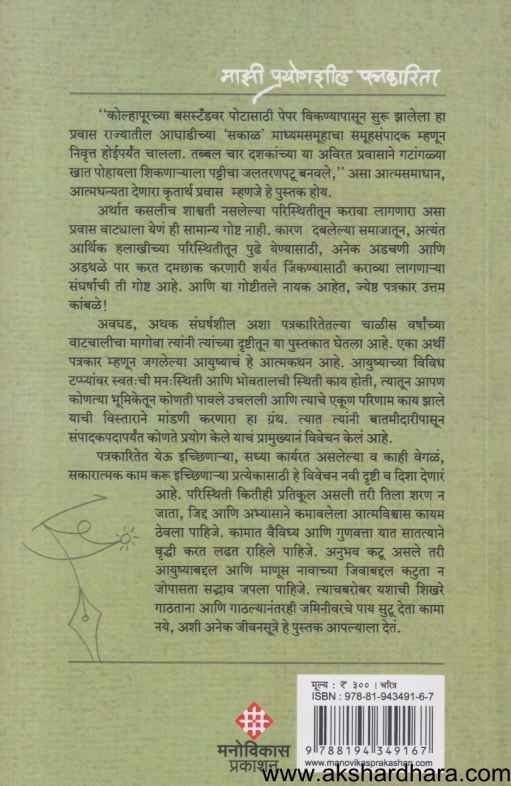 माझी प्रयोगशील पत्रकारिता
‘‘कोल्हापूरच्या बसस्टँडवर पोटासाठी पेपर विकण्यापासून सुरू झालेला हा
प्रवास राज्यातील आघाडीच्या ‘सकाळ’ माध्यमसमूहाचा समूहसंपादक म्हणून
निवृत्त होईपर्यंत चालला. तब्बल चार दशकांच्या या अविरत प्रवासाने गटांगळ्या
खात पोहायला शिकणाऱ्याला पट्टीचा जलतरणपटू बनवले,’’ असा आत्मसमाधान,
आत्मधन्यता देणारा कृतार्थ प्रवास म्हणजे हे पुस्तक होय.
अर्थात कसलीच शाश्वती नसलेल्या परिस्थितीतून करावा लागणारा असा
प्रवास वाट्याला येणं ही सामान्य गोष्ट नाही. कारण दबलेल्या समाजातून, अत्यंत
आर्थिक हलाखीच्या परिस्थितीतून पुढे येण्यासाठी, अनेक अडचणी आणि
अडथळे पार करत दमछाक करणारी शर्यत जिंकण्यासाठी कराव्या लागणाऱ्या
संघर्षाची ती गोष्ट आहे. आणि या गोष्टीतले नायक आहेत, ज्येष्ठ पत्रकार उत्तम
कांबळे!
अवघड, अथक संघर्षशील अशा पत्रकारितेतल्या चाळीस वर्षांच्या
वाटचालीचा मागोवा त्यांनी त्यांच्या दृष्टीतून या पुस्तकात घेतला आहे. एका अर्थी
पत्रकार म्हणून जगलेल्या आयुष्याचं हे आत्मकथन आहे. आयुष्याच्या विविध
टप्प्यांवर स्वतःची मनःस्थिती आणि भोवतालची स्थिती काय होती, त्यातून आपण
कोणत्या भूमिकेतून कोणती पावले उचलली आणि त्याचे एकूण परिणाम काय झाले
याची विस्ताराने मांडणी करणारा हा ग्रंथ. त्यात त्यांनी बातमीदारीपासून
संपादकपदापर्यंत कोणते प्रयोग केले याचं प्रामुख्यानं विवेचन केलं आहे.
पत्रकारितेत येऊ इच्छिणाऱ्या, सध्या कार्यरत असलेल्या व काही वेगळं,
सकारात्मक काम करू इच्छिणाऱ्या प्रत्येकासाठी हे विवेचन नवी दृष्टी व दिशा देणारं
आहे. परिस्थिती कितीही प्रतिकूल असली तरी तिला शरण न
जाता, जिद्द आणि अभ्यासाने कमावलेला आत्मविश्वास कायम
ठेवला पाहिजे. कामात वैविध्य आणि गुणवत्ता यात सातत्याने
वृद्धी करत लढत राहिले पाहिजे. अनुभव कटू असले तरी
आयुष्याबद्दल आणि माणूस नावाच्या जिवाबद्दल कटुता न
जोपासता सद्भाव जपला पाहिजे. त्याचबरोबर यशाची शिखरे
गाठताना आणि गाठल्यानंतरही जमिनीवरचे पाय सुटू देता कामा
नये, अशी अनेक जीवनसूत्रे हे पुस्तक आपल्याला देतं.
मूल्य : ₹ ३०० । चरित्र
ISBN : 978-81-943491-6-7
9 788194 349167
www.manovikasprakashan.com
मनोविकास
प्रकाशन
www.akshardhara.com